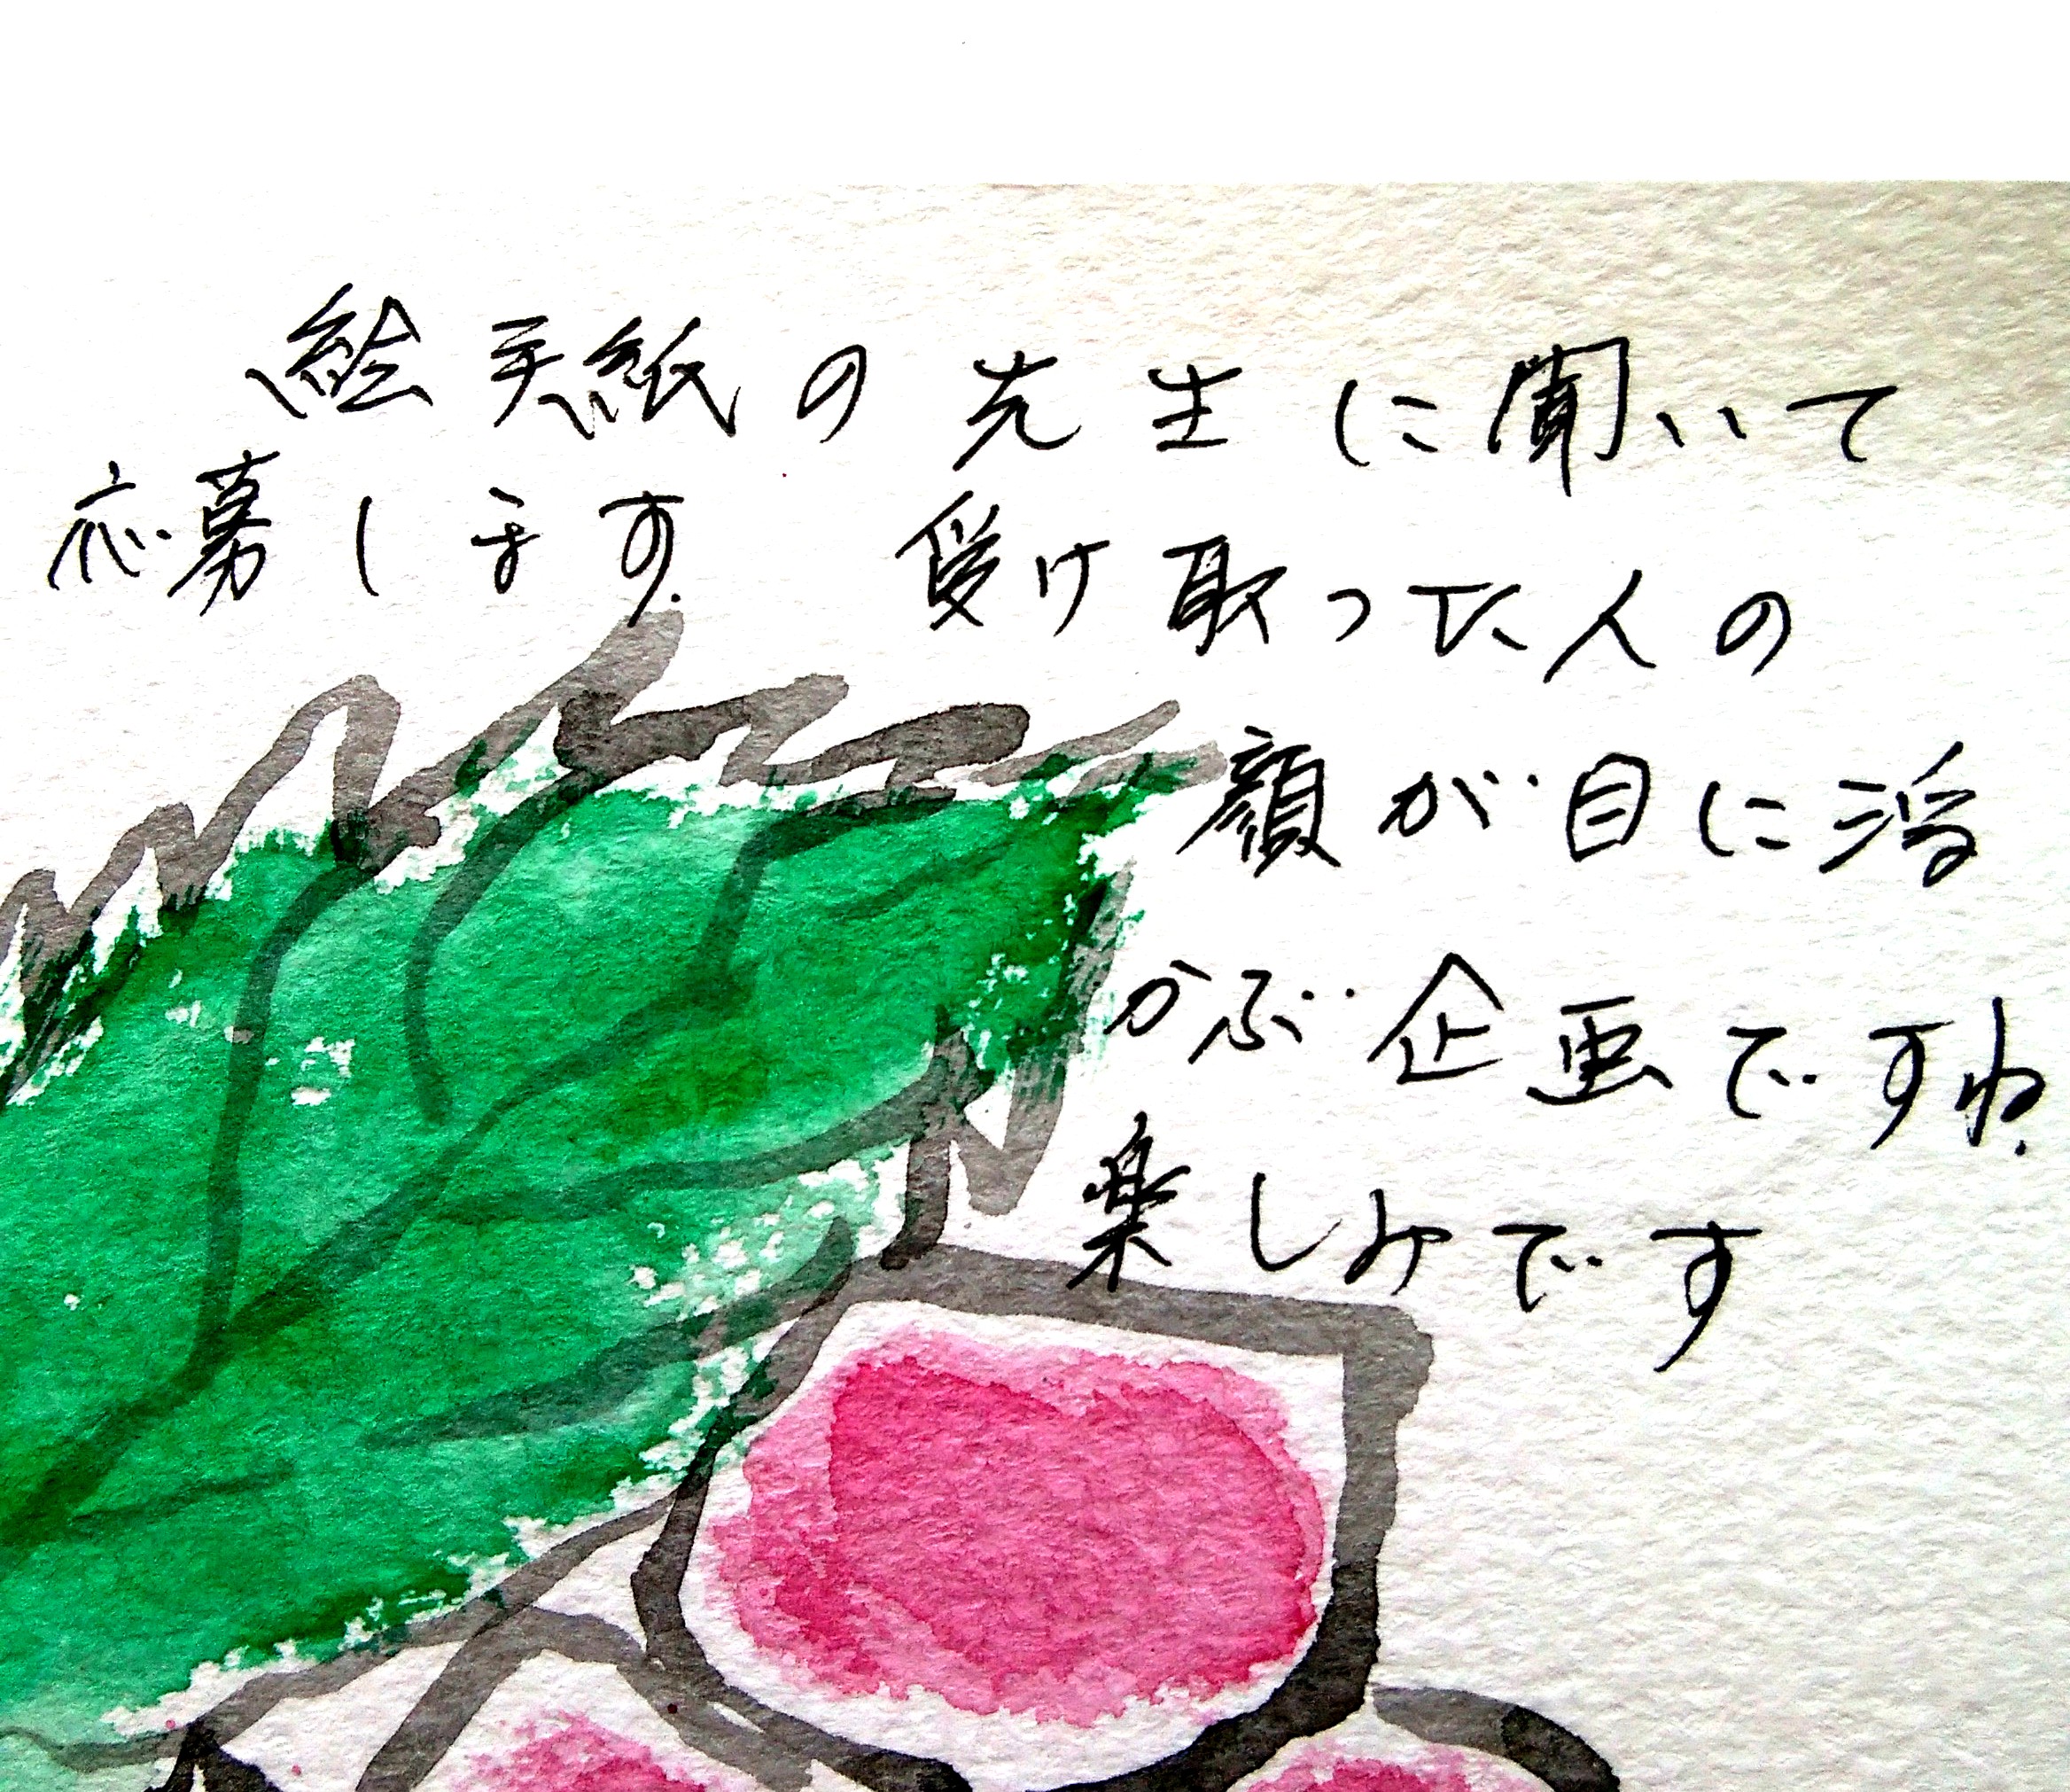 絵手紙の先生に聞いて
応募します. 受け取った人の
顔が目に浮
かぶ企画ですね.
楽しみです